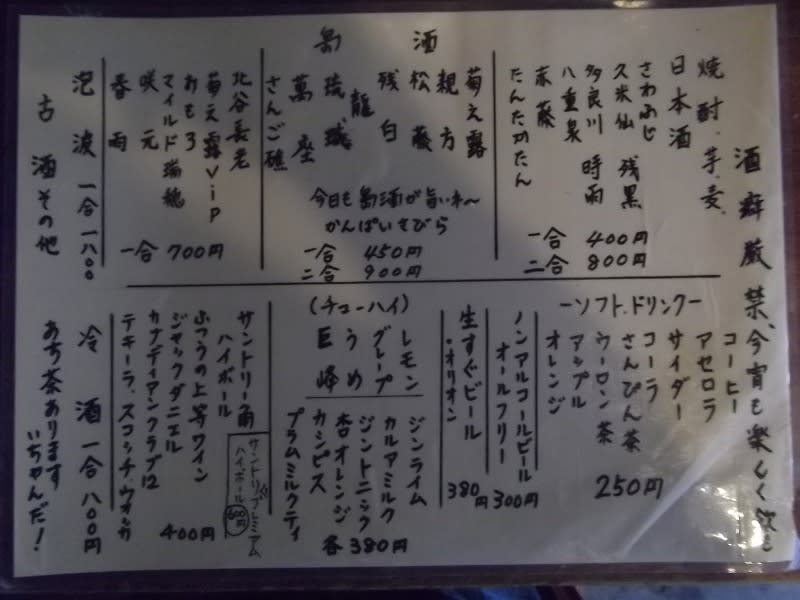 酒癖厳禁、今宵も楽しく飲も
島酒
焼酎.芋.麦.
日本酒
さわふじ
久米仙 残黒
多良川 時雨
八重泉
赤藤
たんたかたん
一合 400円
二合 800円
菊之露
親方
松藤
残白
龍
琉球
萬座
さんご礁
今日も島酒が旨いネ〜
かんぱいさびら
一合 450円
二合 900円
北谷長老
菊之露VIP
おもろ
マイルド瑞穂
咲元
春雨
一合 700円
泡波 一合 一八〇〇
古酒その他
ーソフト.ドリンクー
コーヒー
アセロラ
サイダー
コーラ
さんぴん茶
ウーロン茶
アップル
オレンジ
250円
ノンアルコールビール
オールフリー
300円
生すぐビール
・オリオン
380円
(チューハイ)
レモン
グレープ
うめ
巨峰
ジンライム
カルアミルク
ジントニック
杏オレンジ
カシピス
プラムミルクティ
各380円
サントリー角
ハイボール
ふつうの上等ワイン
ジャックダニエル
カナディアンクラブ12
テキーラ.スコッチ.ウオッカ
400円
サントリープレミアム
ハイボール
600円
冷酒 一合 八〇〇円
あち茶あります
いちゃんだ!